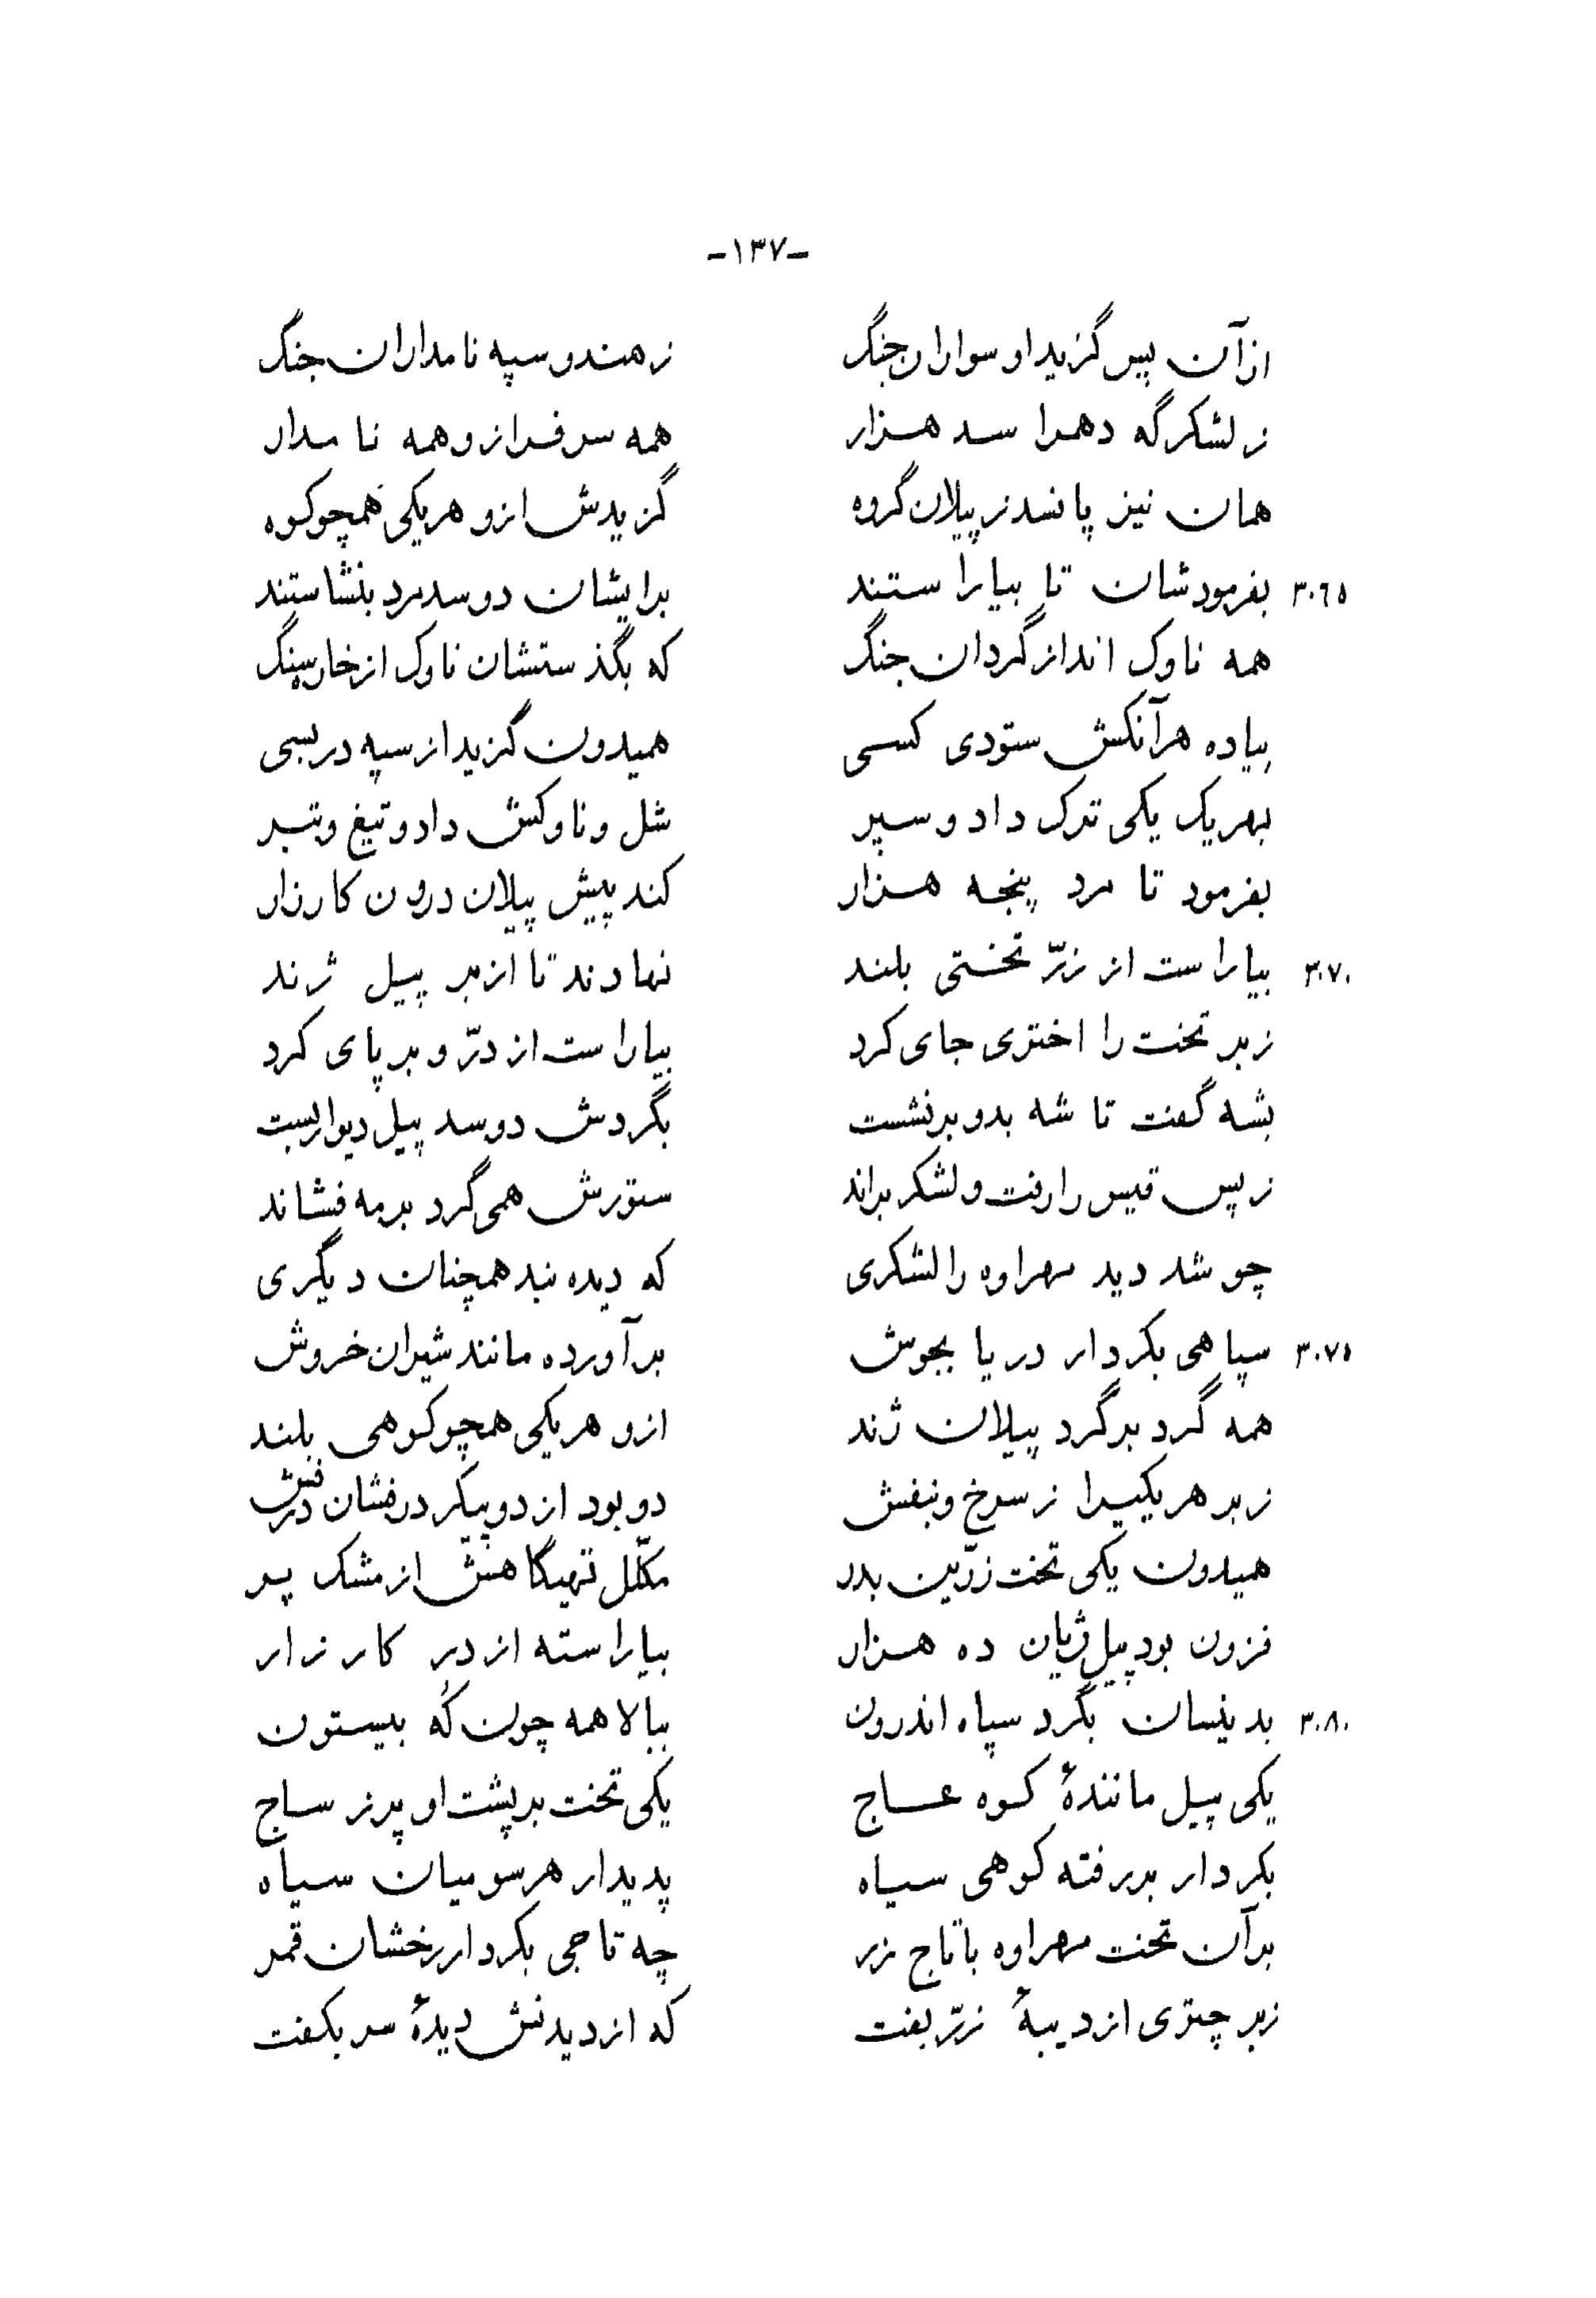 -۱۳۷-
از آن پس گزید او سواران جنگ ز هندو سپه نامداران جنگ
ز لشکرگه دهرا سد هزار همه سرفراز و همه نامدار
همان نیز پانسد ز پیلان گروه گزیدش ازو هریکی همچو کوه
۳۰۶۵ بفرمودشان تا بیاراستند برایشان دوسد مرد بنشاستند
همه ناوک انداز گردان جنگ که بگذ ستشان ناوک از خاره سنگ
پیاده هرآنکش ستودی کسی همیدون گزید از سپه در بسی
بهریک یکی ترک داد و سپر شل و ناوکش داد و تیغ و تبر
بفرمود تا مرد پنجه هزار کند پیش پیلان درون کارزار
۳۰۷۰ بیاراست از زرّ تختی بلند نهادند تا از بر پیل ژند
زبر تخت را اختری جای کرد بیاراست از درّ و بر پای کرد
بشه گفت تا شه بدو برنشست بگردش دوسد پیل دیوار بست
ز پس قیس را رفت و لشکر براند ستورش همی گرد بر مه فشاند
چو شد دید مهراوه را لشکری که دیده نبد همچنان دیگری
۳۰۷۵ سپاهی بکردار دریا بجوش برآورده مانند شیران خروش
همه گرد بر گرد پیلان ژند ازو هریکی همچو کوهی بلند
زبر هریکیرا ز سرخ و بنفش دو بود از دو پیکر درفشان درفش
همیدون یکی تخت زرّین بدر مکلّل تهیگاهش از مشک پر
فزون بود پیل ژیان ده هزار بیاراسته از در کارزار
۳۰۸۰ بدینسان بگرد سپاه اندرون ببالا همه چون که بیستون
یکی پیل مانندهٔ کوه عاج یکی تخت بر پشت او پر ز ساج
بکردار بر رفته کوهی سیاه پدیدار هرسو میان سپاه
بر آن تخت مهراوه با تاج زر چه تاجی بکردار رخشان قمر
زبر چتری از دیبهٔ زرّ بفت که از دیدنش دیدهٔ سر بکفت